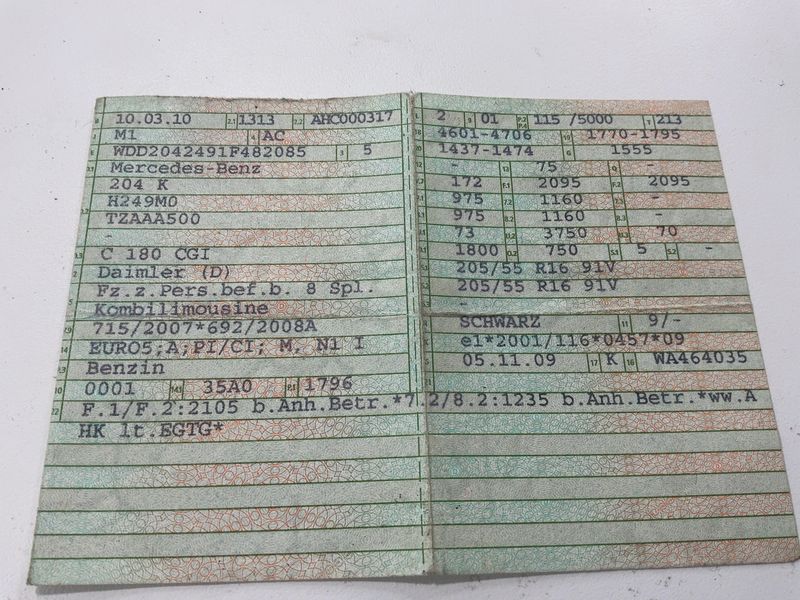 10.03.10 2.1 1313 2.2 AHC000317
M1 4 AC
WDD2042491F482085 3 5
Mercedes-Benz
204 K
H249M0
TZAAA500
-
C 180 CGI
Daimler (D)
Fz.z.Pers.bef.b. 8 Spl.
Kombilimousine
715/2007*692/2008A
EURO5;A;PI/CI; M, N1 I
Benzin
0001 35A0 P.1 1796
2 9 01 P.2 P.4 115 /5000 T 213
4601-4706 1770-1795
1437-1474 G 1555
- 75 -
172 F.1 2095 F.2 2095
975 7.2 1160 -
975 8.2 1160 -
73 3750 70
1800 O.2 750 S.1 5 S.2 -
205/55 R16 91V
205/55 R16 91V
-
SCHWARZ 11 9/-
e1*2001/116*0457*09
05.11.09 17 K 16 WA464035
F.1/F.2:2105 b.Anh.Betr.*7.2/8.2:1235 b.Anh.Betr.*ww.A
HK lt.EGTG*